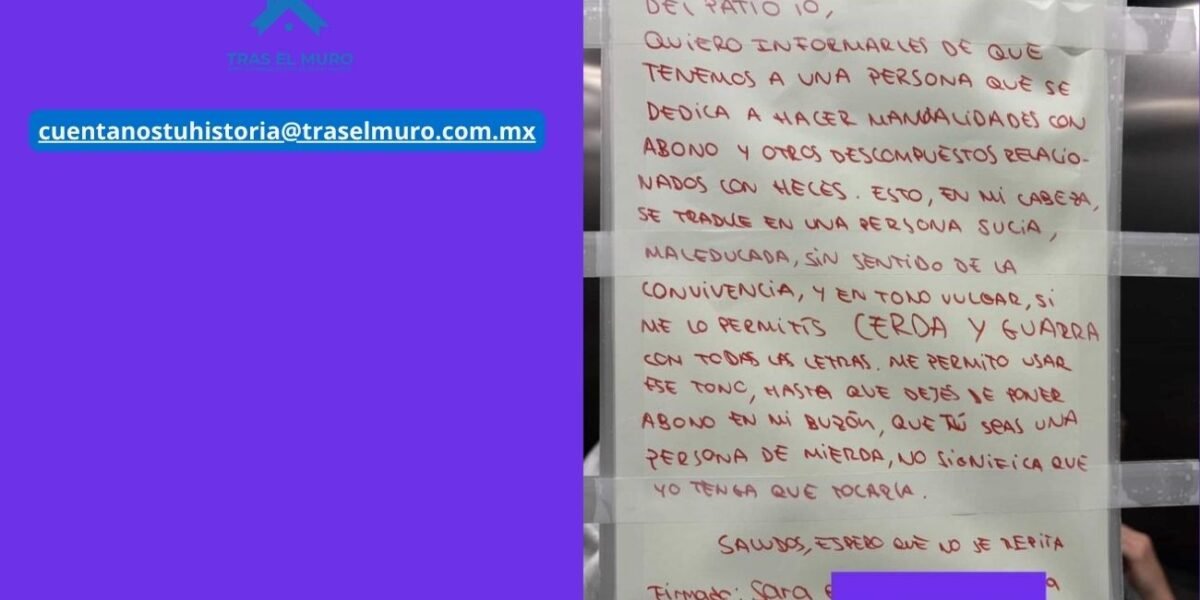 TRAS EL MURO
cuentanostuhistoria@traselmuro.com.mx
DEL PATIO 10,
QUIERO INFORMARLES DE QUE
TENEMOS A UNA PERSONA QUE SE
DEDICA A HACER MANUALIDADES CON
ABONO Y OTROS DESCOMPUESTOS RELACIO-
NADOS CON HECES. ESTO, EN MI CABEZA,
SE TRADUCE EN UNA PERSONA SUCIA,
MALEDUCADA, SIN SENTIDO DE LA
CONVIVENCIA, Y EN TONO VULGAR, SI
ME LO PERMITÍS CERDA Y GUARRA
CON TODAS LAS LETRAS. ME PERMITO USAR
ESE TONO, HASTA QUE DEJÉS DE PONER
ABONO EN MI BUZÓN, QUE TÚ SEAS UNA
PERSONA DE MIERDA, NO SIGNIFICA QUE
YO TENGA QUE TOCARLA.
SALUDOS, ESPERO QUE NO SE REPITA
Firmado: Sara